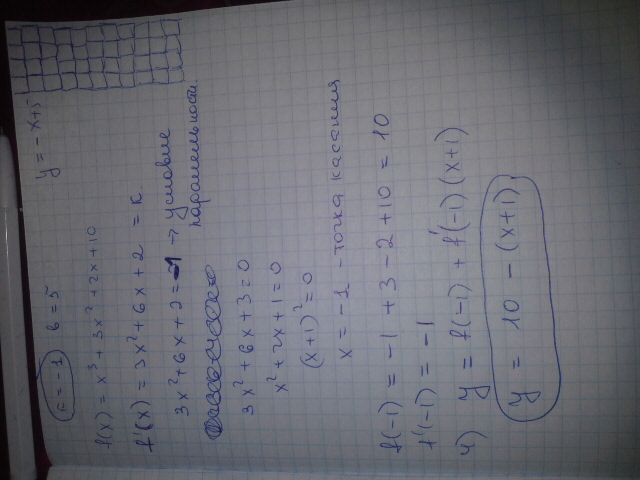 y = -x+5
k = -1 b = 5
f(x) = x³ + 3x² + 2x + 10
f'(x) = 3x² + 6x + 2 = k
3x² + 6x + 2 = -1 → условие
параллельности.
3x² + 6x + 3 = 0
x² + 2x + 1 = 0
(x+1)² = 0
x = -1 - точка касания
f(-1) = -1 + 3 - 2 + 10 = 10
f'(-1) = -1
4) y = f(-1) + f'(-1)(x+1)
y = 10 - (x+1)